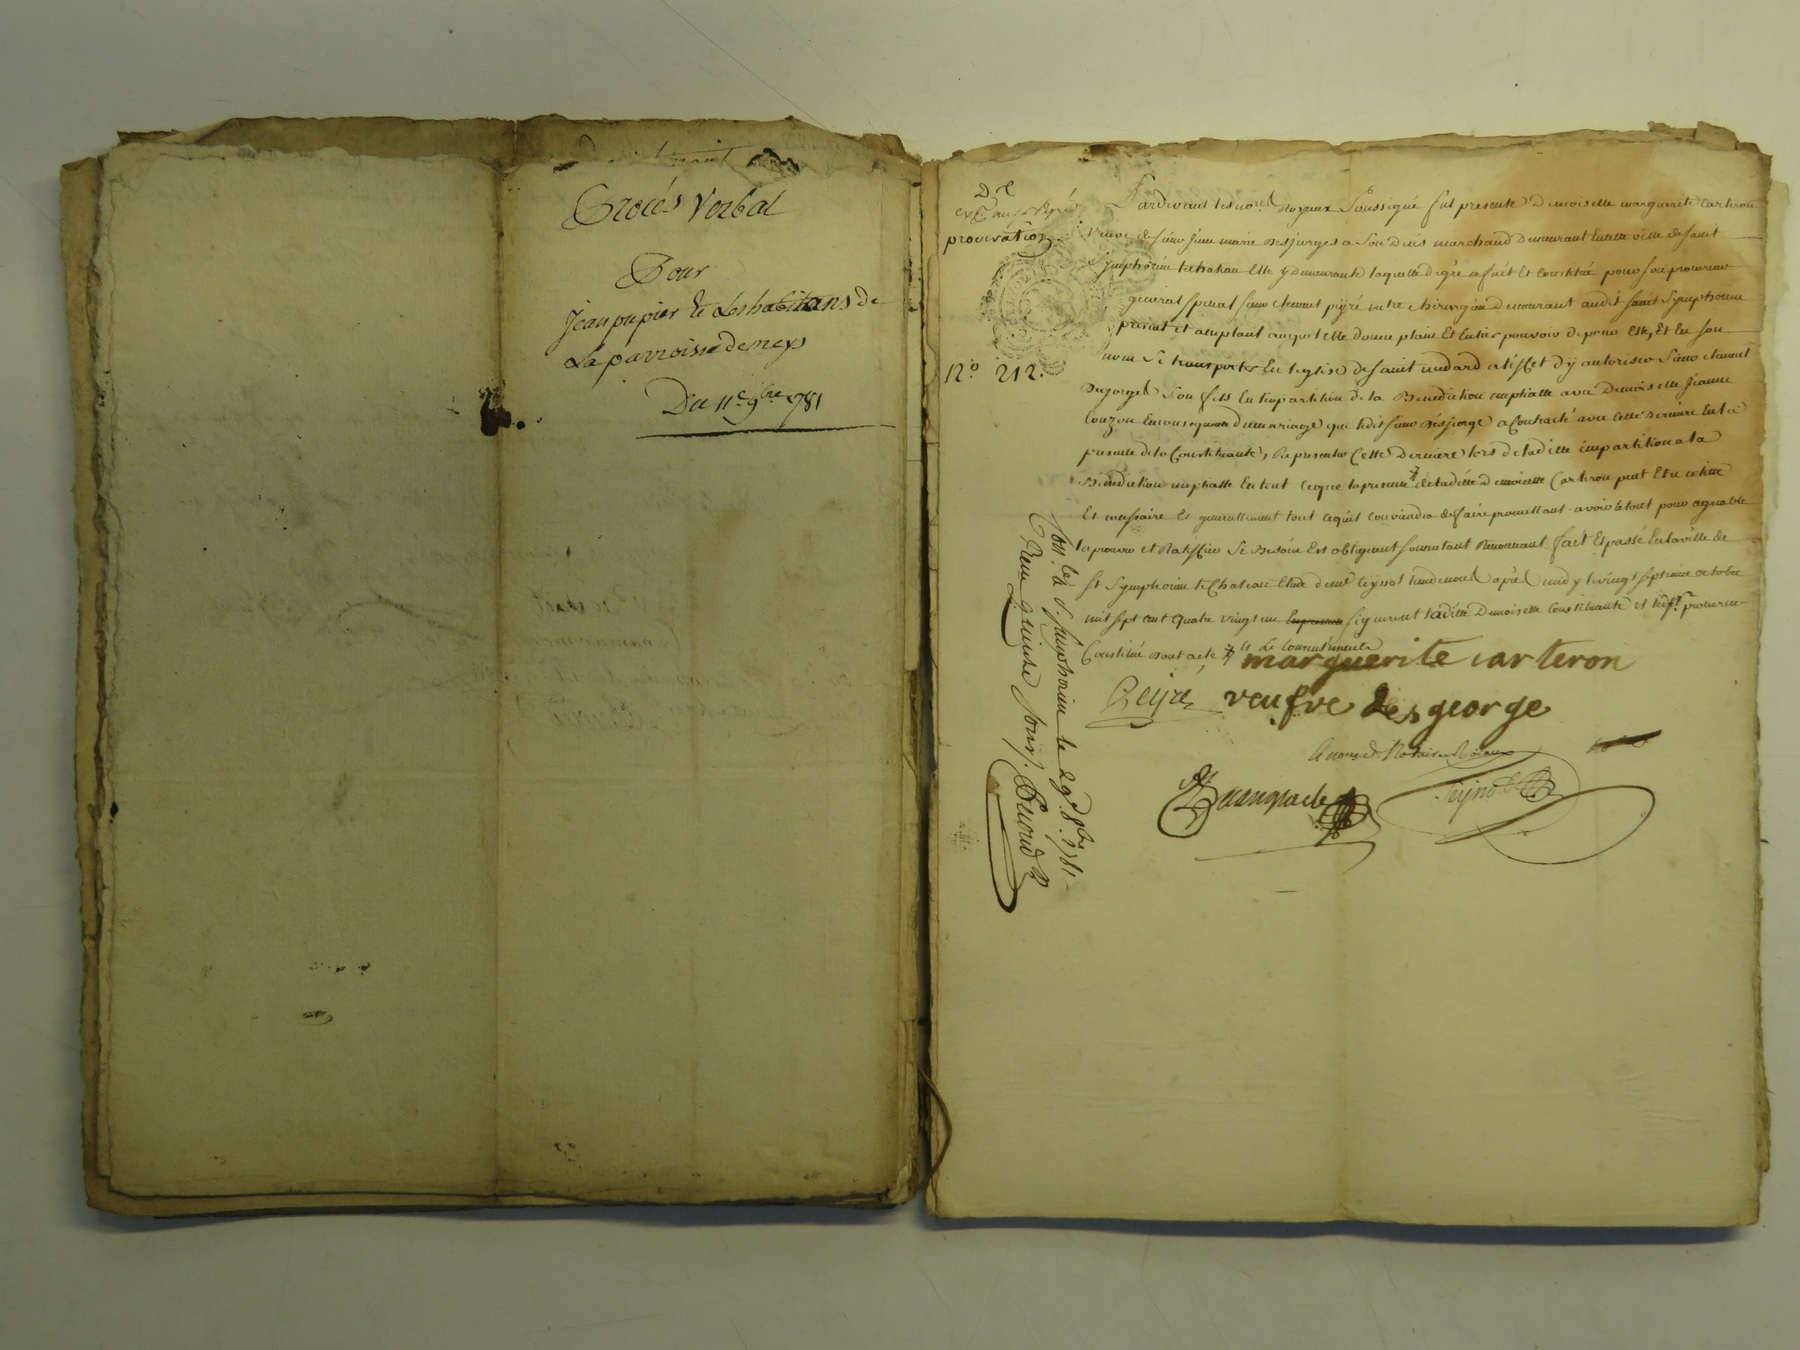 Procés Verbal
Pour
Jean pupier & Les habitans de
La parroisse de meys
Du 11e 9bre 1781
procuration
No 212.
Pardevant les nores Royaux Soussigné fut presente Demoiselle marguerite Carteron
veuve de sieur Jean marie Desjorges a Son Deces marchand Demeurant En cette ville de saint
Symphorien le chateau Elle y demeurante laquelle de gré a fait Et Constitué pour son procureur
general special sieur clement peyré me chirurgien Demeurant audit saint Symphorien
present et acceptant auquel elle donne plain Et Entier pouvoir de pour Elle, Et En son
nom Se transporter En l'eglise de saint medard et d'y autoriser Sieur clement
Desjorges Son fils En l'impartition de la Benediction nuptialle avec Demoiselle Jeanne
Couzon En consequance du mariage que ledit sieur Desjorge a Contracté avec cette Derniere En la
presence de la Constituante, Representer Cette Derniere lors de la ditte impartition a la
Benediction nuptialle En tout Ce que la presence de la ditte Demoiselle Carteron peut Etre utille
Et necessaire Et generallement tout ce qu'il conviendra de faire promettant avoir le tout pour agreable
l'aprouver et Ratiffier Si Besoin Est obligeant soumettant Renonceant fait Et passé En la ville de
St Symphorien le Chateau Etude de me teyssot l'un de nous apres midy le vingt septieme octobre
mil sept cent quatre vingt un signerent la ditte Demoiselle Constituante et le sr procureur
Constitué Dont acte
marguerite carteron
Peyré veufve des george
Con. le à St. Simphorien le 29. 8bre 1781
Reçu quinze sous.